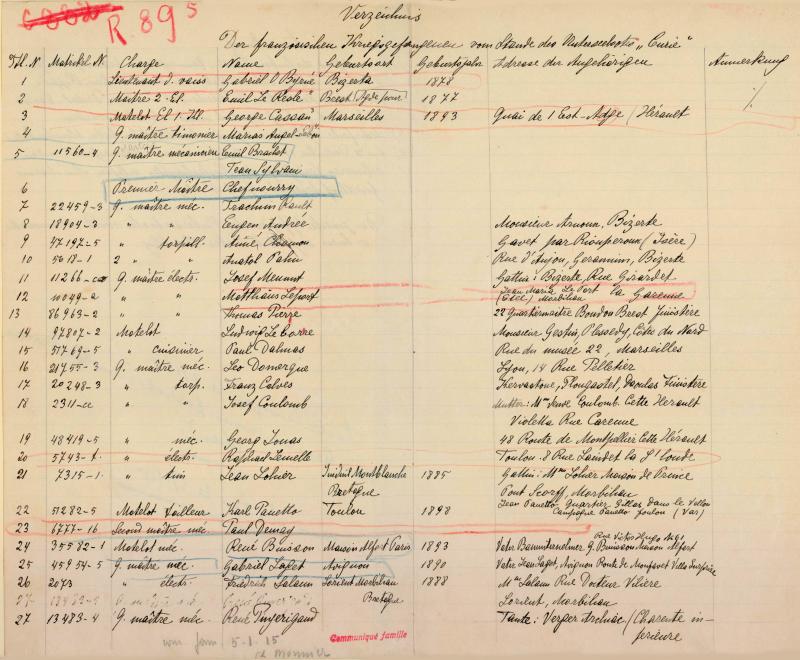 R. 895
Verzeichnis
Der französischen Kriegsgefangenen vom Stande des Unterseebootes „Curie"
Ftl. N Matrikl. N Charge Name Geburtsort Geburtsjahr Adresse der Angehörigen Anmerkung
1 Lieutenant d. vaiss Gabriel O Byrne Bizerta 1878
2 Maitre 2. El. Emil Le Reste Brest 1877
3 Matelot El. 1. Kl. George Cassan Marseilles 1893 Quai de l Est-Adge (Hérault
4 G. maître timonier Marius Angel
5 11560-4 G. maître mécanicien Emil Braitet
Jean Sylvani
6 Premier Maître Chefnourry
7 22459-3 G. maître méc. Joachim Rault
8 18904-3 " " Eugen Andrée Monsieur Arnoun, Bizerte
9 47197-5 " torpill. Aimé Chamon Gavet par Riouperoun (Isère)
10 5618-1 2 " " Anatol Palin Rue d'Anjou, Geranium, Bizerte
11 11266 G. maître électr. Josef Meunnt Gattin: Bizerte, Rue Girardet
12 11049-a " " Matthäus Leport Jean Maria Le Port la Garenne
(Etel) Morbihan
13 86963-2 " " Thomas Pierre 22 Quartiermaître Boudon Brest Finistère
14 97807-2 Matelot Ludwig Le Corre Monsieur Gestin Plessedy, Côte du Nord
15 51769-5 " cuisinier Paul Dalmas Rue du musée 22, Marseilles
16 21755-3 G. maître méc. Leo Domergue Lyon, 14 Rue Pelletier
17 20248-3 " torp. Franz Calves Kervastoue, Plougastel, Daoulas Finistère
18 2311-a " " Josef Coulomb Mutter: Mme Veuve Coulomb. Cette Herault
Violetta Rue Carenne
19 48419-5 " méc. Georg Jonas 48 Route de Montpellier Cette Hérault
20 5743-t. " électr. Raphael Lemelle Toulon. 8 Rue Laindet la S'Londe
21 7315-1. " tim Jean Lohier Inidret Montblanche 1885 Gattin: Mme Lohier Maison de Prince
Bretagne Pont Scorff, Morbihan
22 51282-5 Matelot Tailleur Karl Panetto Toulon 1898 Jean Panetto, Quartier Gillas, Dans le Vallon
Campagne Panetto Toulon (Var)
23 6777-16 Second maître méc Paul Demay
Rue Victor Hugo No 91
24 35582-1 Matelot méc. René Buisson Maison Alfort Paris 1893 Vater Bauunternehmer G. Buisson Maison Alfort
25 45954-5 G. maître méc. Gabriel Laget Avignon 1890 Vater Jean Laget, Avignon Route de Monfavet Villa
26 2073 " électr. Friedrich Salaun Lorient Morbihan 1888 Mme Salaun Rue Docteur Vilière
Bretagne Lorient, Morbihan
27 13483-4 G. maître méc. René Tuzerigaud Tante: Verger Archiac (Charente in-
férieure
5-1.15
Communiqué famille